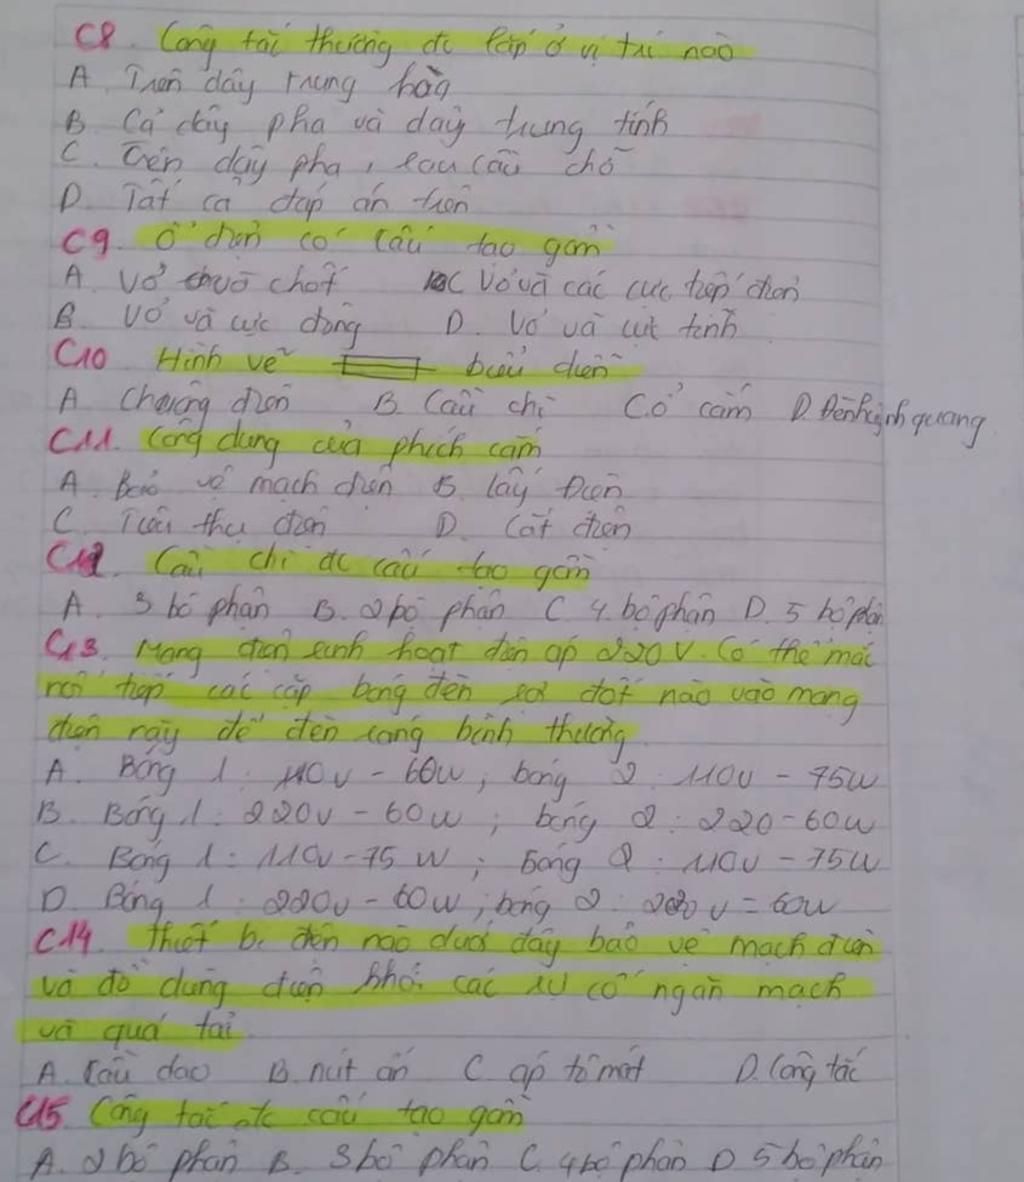 C8. Công tắc thường đc lắp ở vị trí nào
A. Trên dây trung hòa
B. Cả dây pha và dây trung tính
C. Trên dây pha, sau cầu chì
D. Tất cả đáp án trên
C9. Ổ điện có cấu tạo gồm
A. Vỏ chốt C Vỏ và các cực tiếp điện
B. Vỏ và cực động D. Vỏ và cực tĩnh
C10 Hình vẽ biểu diễn
A. Chuông điện B. Cầu chì C. Ổ cắm D. Đèn huỳnh quang
C11. Công dụng của phích cắm
A. Bảo vệ mạch điện B. lấy điện
C. Tiêu thụ điện D. Cắt điện
C12. Cầu chì đc cấu tạo gồm
A. 3 bộ phận B. 2 bộ phận C 4. bộ phận D. 5 bộ phận
C13. Mạng điện sinh hoạt điện áp 220V. Có thể mắc
nối tiếp các cặp bóng đèn sợi đốt nào vào mạng
điện này để đèn sáng bình thường
A. Bóng 1: 110v - 60w, bóng 2 110v - 75w
B. Bóng 1: 220v - 60w; bóng 2: 220-60w
C. Bóng 1: 110v-75 W; bóng 2: 110v - 75w
D. Bóng 1: 220v - 60w; bóng 2: v = 60w
C14 thiết bị điện nào dưới đây bảo vệ mạch điện
và đồ dùng điện khỏi các sự cố ngắn mạch
và quá tải
A. Cầu dao B. nút ấn C áp tô mát D. Công tắc
C15 Công tắc đc cấu tạo gồm
A. 2 bộ phận B. 3 bộ phận C. 4 bộ phận D 5 bộ phận